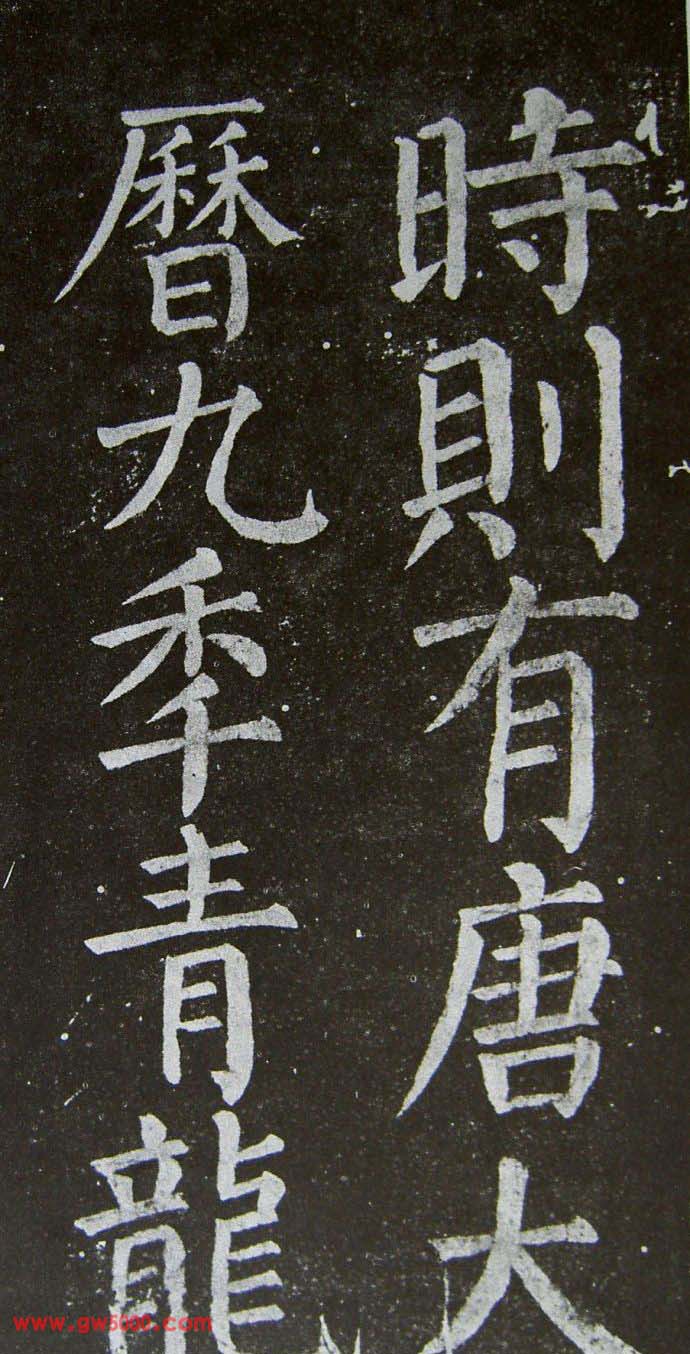 時則有唐大
曆九秊青龍
www.gw5000.com